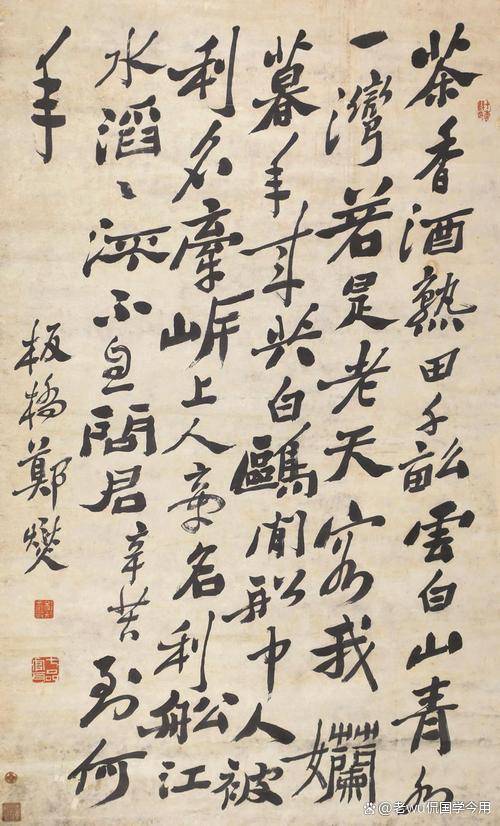 茶香酒熟田千畝雲白山青水
一灣若是老天容我嬾
暮年來共白鷗閒船中人被
利名牽岸上人牽名利船江
水滔〻流不息問君辛苦到何
年
板橋鄭燮
老wu侃国学今用